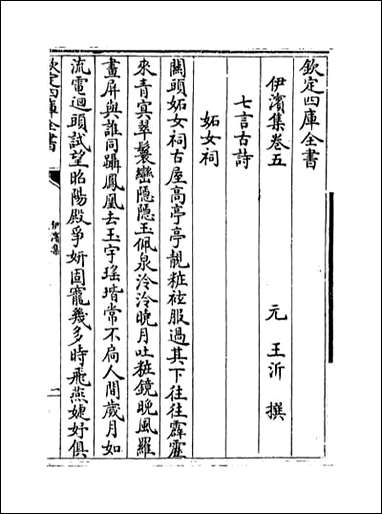 欽定四庫全書
伊濱集卷五
元 王沂 撰
七言古詩
妬女祠
關頭妬女祠古屋高亭亭靚粧袨服過其下往往霹靂
來青寞翠鬟巒隠隠玉佩泉泠泠晚月吐粧鏡晚風羅
畫屏與誰同躡鳳凰去玉宇瑶堦常不扃人間歲月如
流電迴頭試望昭陽殿爭妍固寵幾多時飛燕婕妤俱
欽定四庫全書
伊濱集